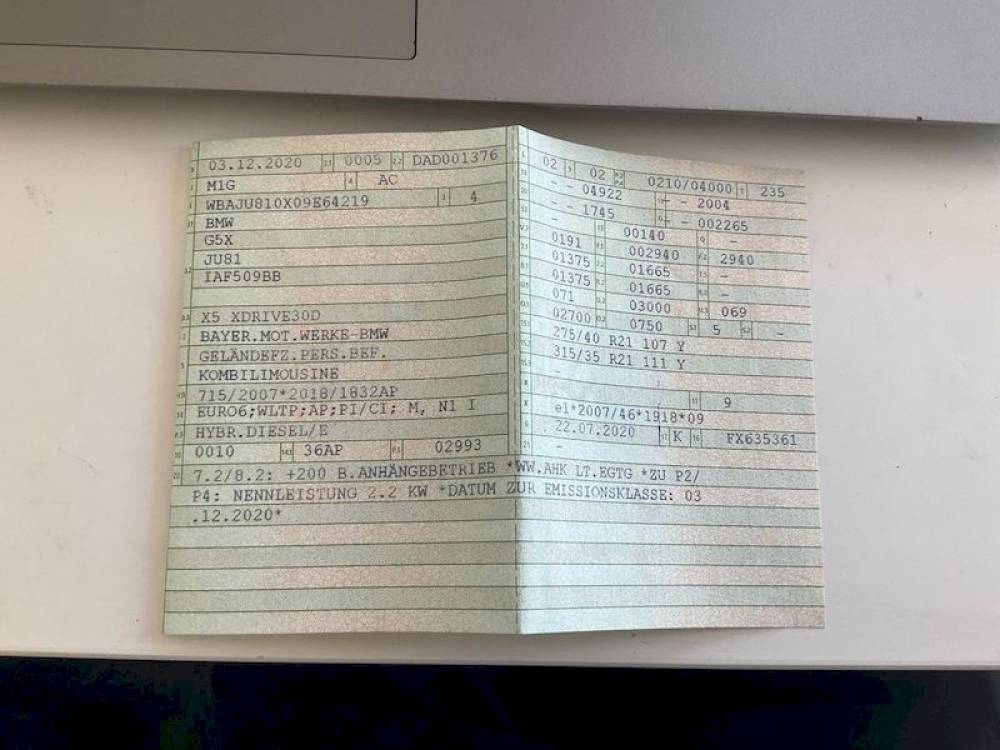 03.12.2020 2.1 0005 2.2 DAD001376
M1G 4 AC
WBAJU810X09E64219 3 4
BMW
G5X
JU81
IAF509BB
X5 XDRIVE30D
BAYER.MOT.WERKE-BMW
GELÄNDEFZ.PERS.BEF.
KOMBILIMOUSINE
715/2007*2018/1832AP
EURO6;WLTP;AP;PI/CI; M, N1 I
HYBR.DIESEL/E
0010 14.1 36AP P.1 02993
02 9 02 P.2 P.4 0210/04000 T 235
- - 04922 - - 2004
- - 1745 - - 002265
- 00140 Q -
0191 002940 2940
01375 01665 -
01375 01665 -
071 03000 069
02700 0750 S.1 5 S.2 -
275/40 R21 107 Y
315/35 R21 111 Y
-
11 9
e1*2007/46*1918*09
22.07.2020 17 K 16 FX635361
-
22 7.2/8.2: +200 B.ANHÄNGEBETRIEB *WW.AHK LT.EGTG *ZU P2/
P4: NENNLEISTUNG 2.2 KW *DATUM ZUR EMISSIONSKLASSE: 03
.12.2020*